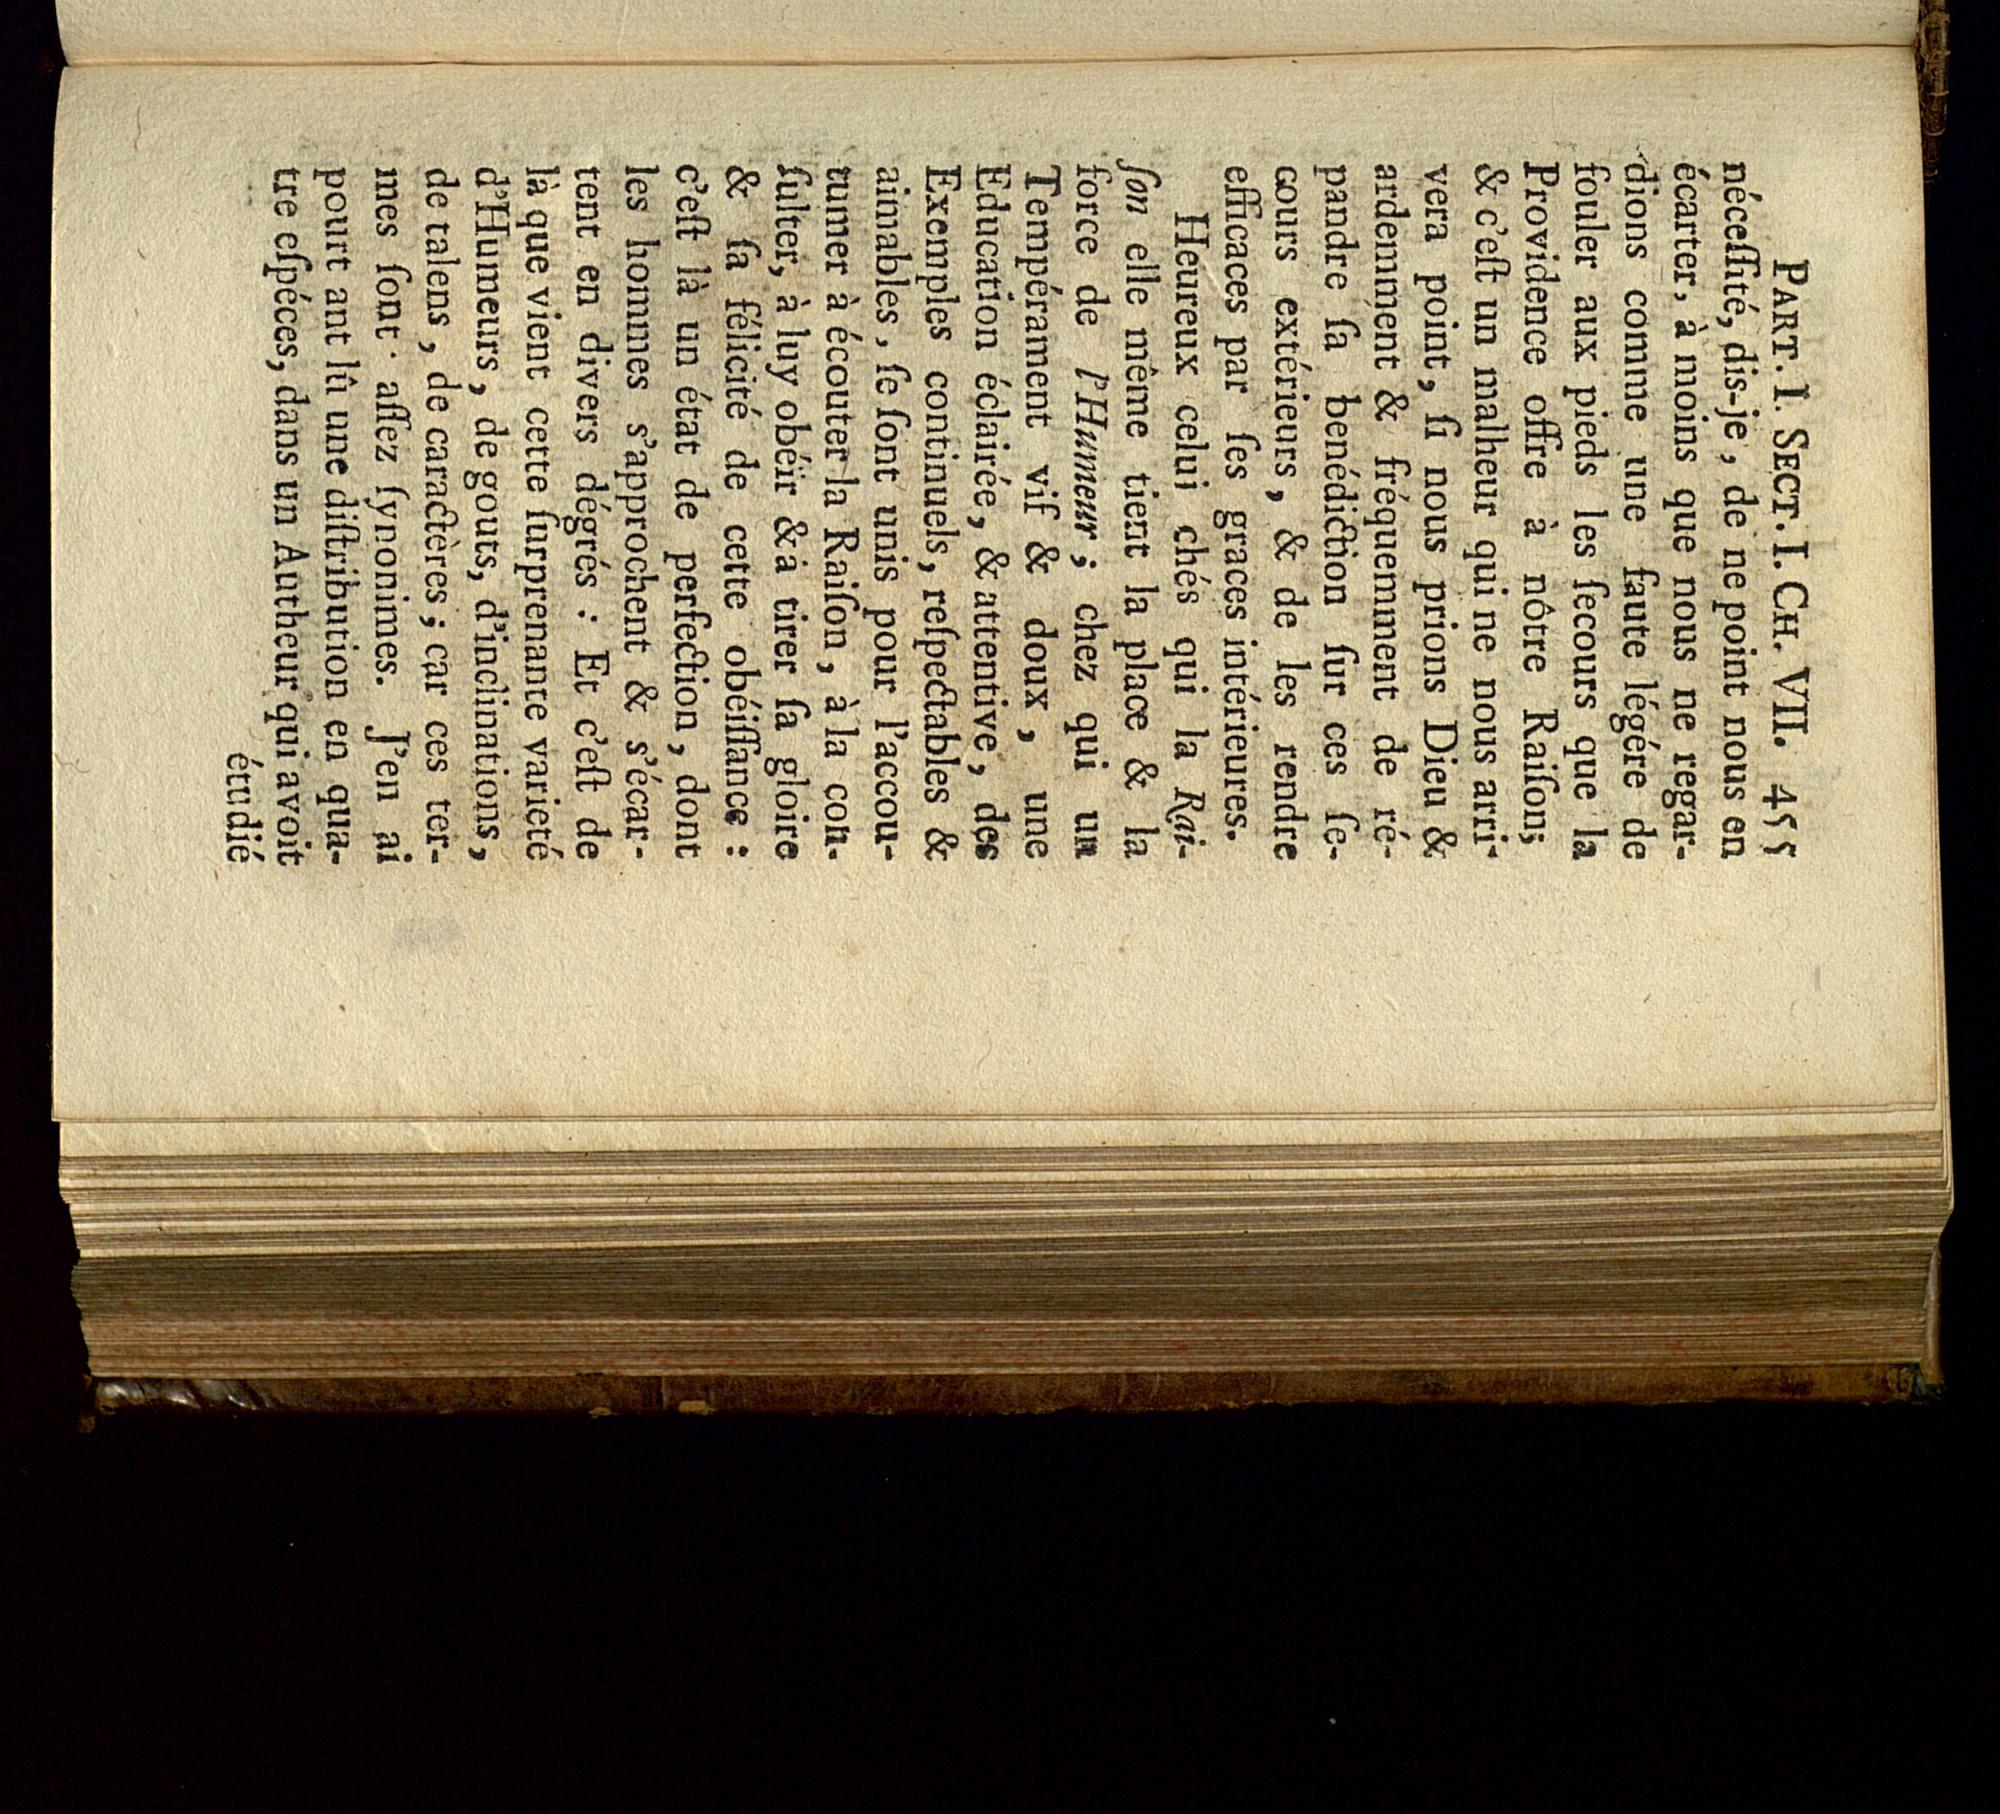 PART. I. SECT. I. CH. VII. 455
néceſſité, dis-je, de ne point nous en
écarter, à moins que nous ne regar-
dions comme une faute légére de
fouler aux pieds les ſecours que la
Providence offre à nôtre Raiſon;
& c'eſt un malheur qui ne nous arri-
vera point, ſi nous prions Dieu &
ardemment & fréquemment de ré-
pandre ſa benédiction ſur ces ſe-
cours extérieurs, & de les rendre
efficaces par ſes graces intérieures.
Heureux celui chés qui la Rai-
ſon elle même tient la place & la
force de l'Humeur; chez qui un
Tempérament vif & doux, une
Education éclairée, & attentive, des
Exemples continuels, reſpectables &
aimables, ſe ſont unis pour l'accou-
tumer à écouter la Raiſon, à la con-
ſulter, à luy obéïr & à tirer ſa gloire
& ſa félicité de cette obéiſſance:
c'eſt là un état de perfection, dont
les hommes s'approchent & s'écar-
tent en divers dégrés: Et c'eſt de
là que vient cette ſurprenante varieté
d'Humeurs, de gouts, d'inclinations,
de talens, de caractères; car ces ter-
mes ſont aſſez ſynonimes. J'en ai
pourt ant lû une diſtribution en qua-
tre eſpéces, dans un Autheur qui avoit
étudié